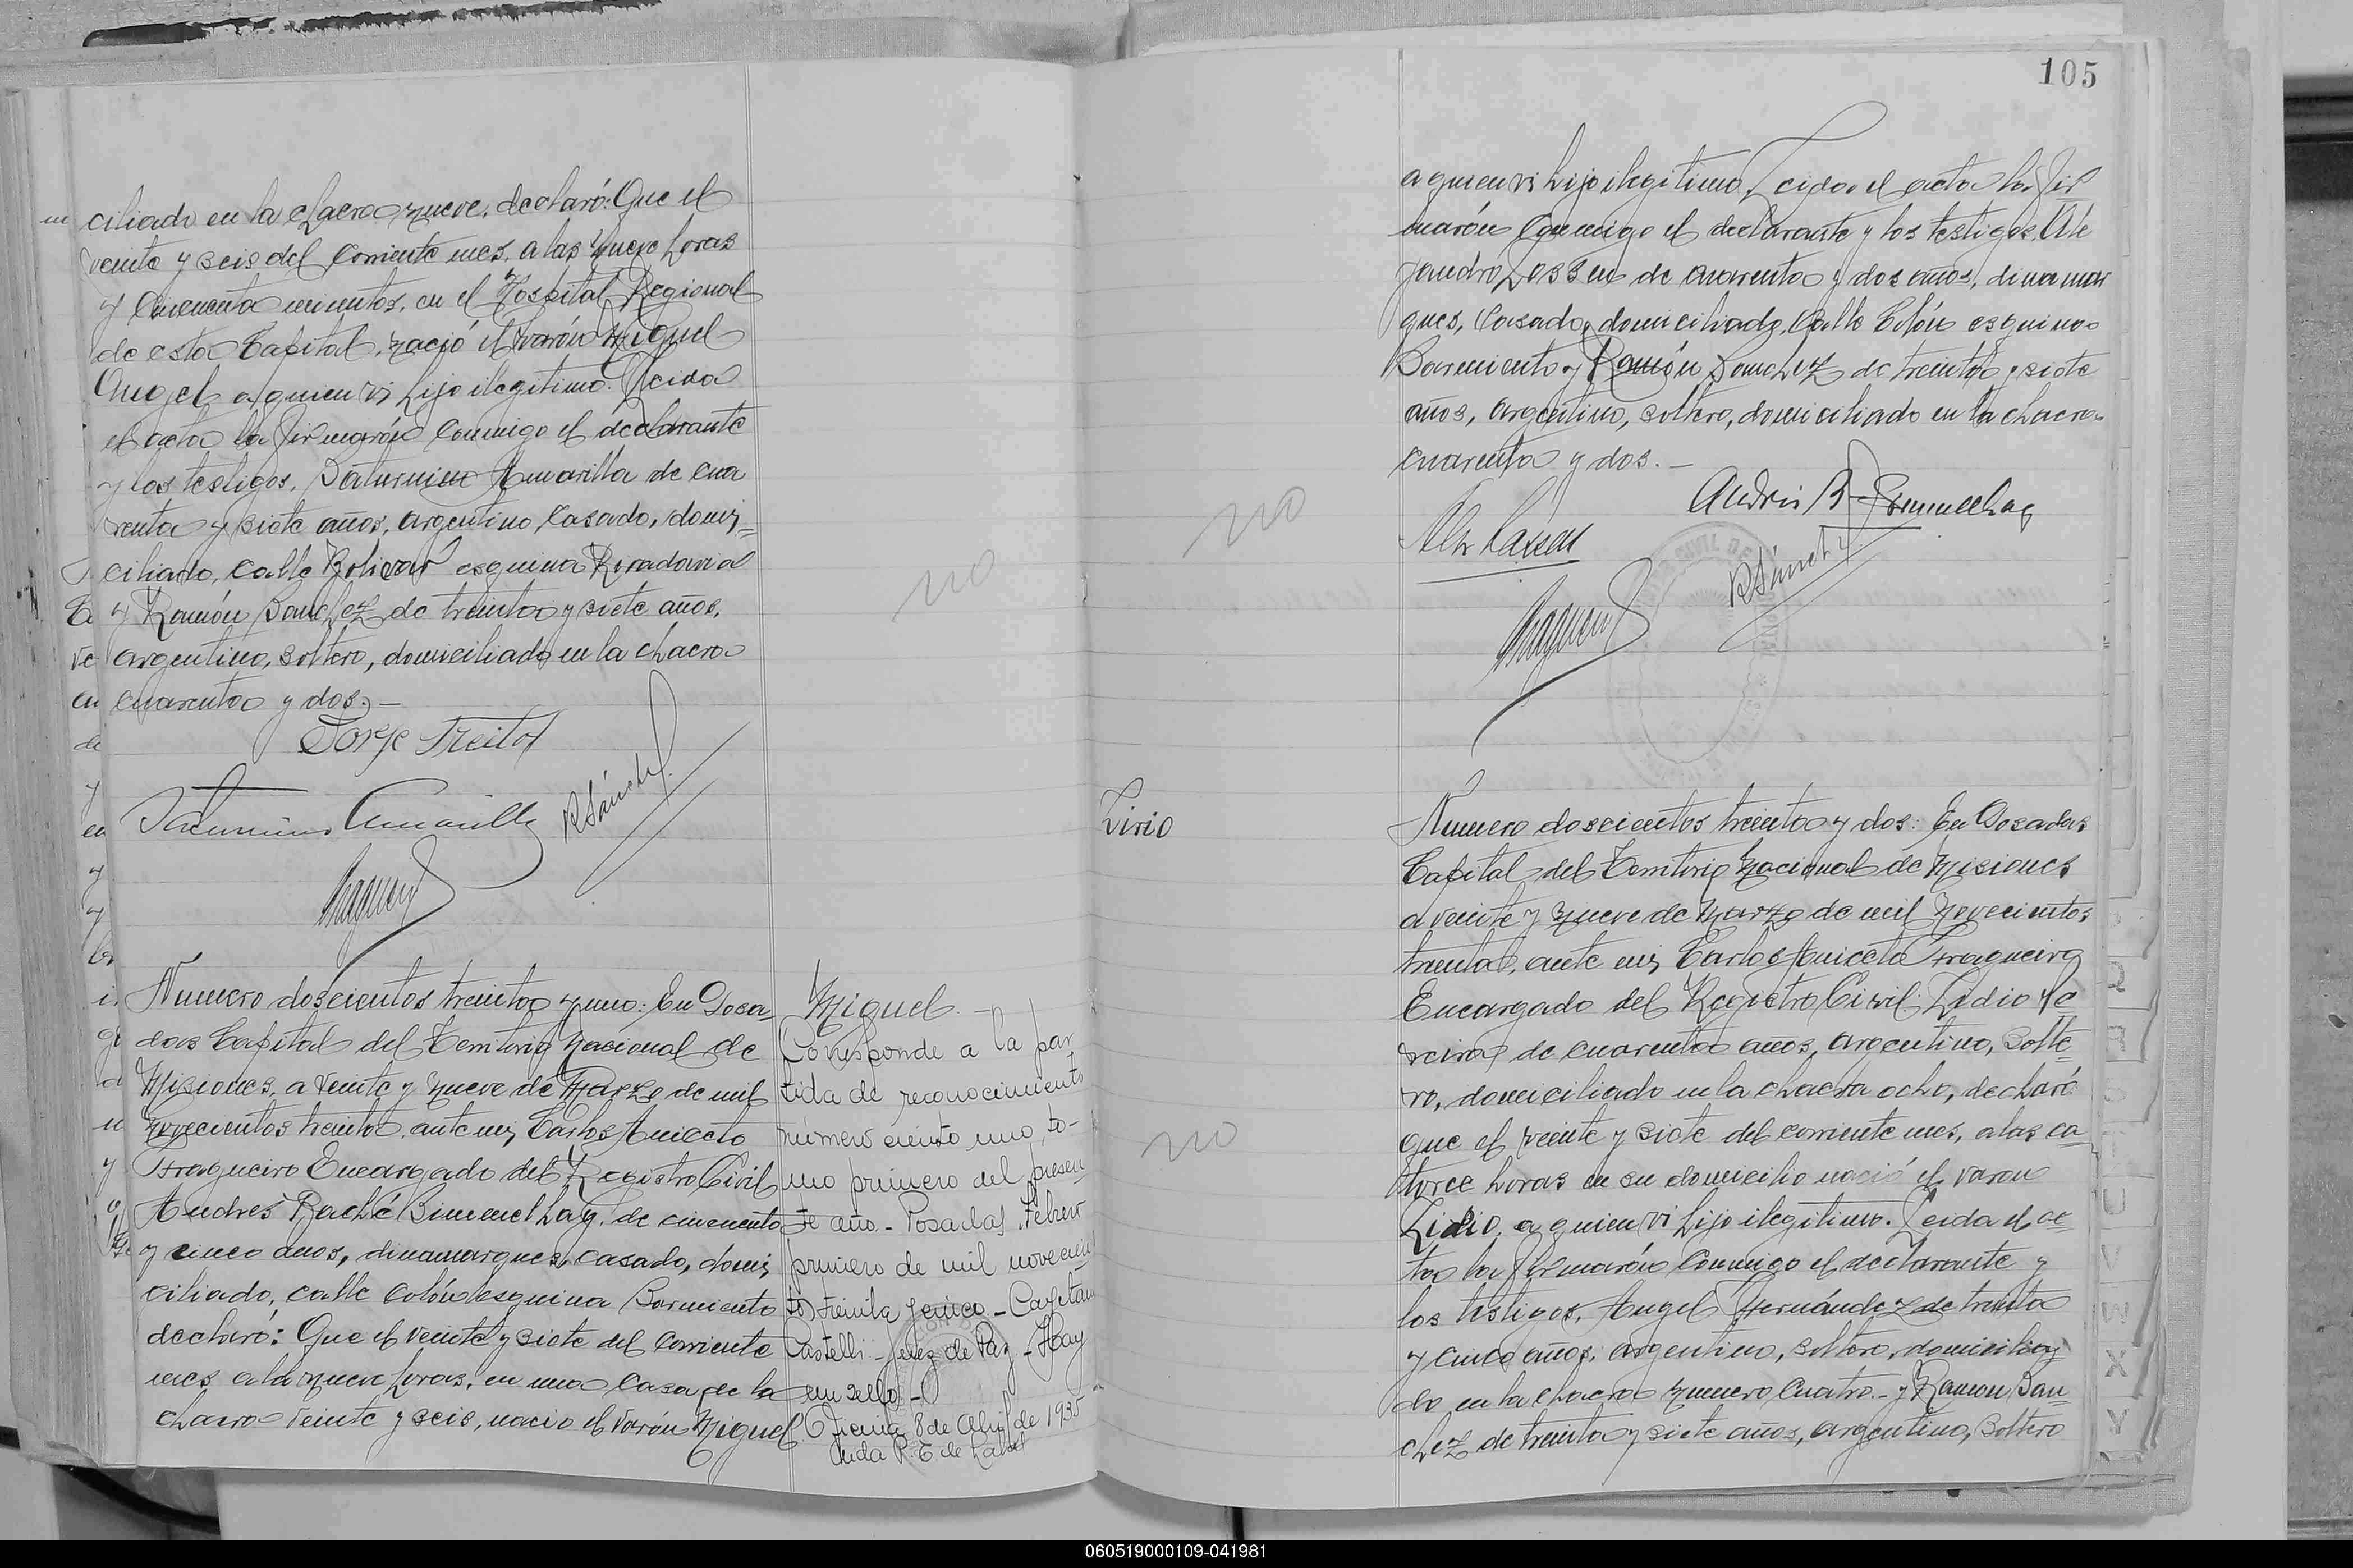 ciliado en la chacra nueve, declaró: Que el
veinte y seis del corriente mes, a las nueve horas
y cincuenta minutos, en el Hospital Regional
de esta Capital, nació el varón Miguel
Angel a quien vi hijo ilegitimo. Leida
el acta la firmarón conmigo el declarante
y los testigos, Saturnino Amarilla de cua
renta y siete años, argentino, casado, domi=
ciliado, calle Bolivar esquina Rivadavia
y Ramón Sanchez de treinta y siete años,
argentino, soltero, domiciliado en la chacra
cuarenta y dos.-
Jorje
Saturnino Amarilla
RSánchez
Numero doscientos treinta y uno: En Posa
das Capital del Territorio Nacional de
Misiones, a veinte y nueve de Marzo de mil
novecientos treinta, ante mi, Carlos Aniceto
Fragueiro Encargado del Registro Civil
Andrés Raché de cincuenta
y cinco años, dinamarques, casado, domi
ciliado, calle Colón esquina Sarmiento
declaró: Que el veinte y siete del corriente
mes a la nueve horas, en una casa de la
chacra veinte y seis, nacio el varón Miguel
Miguel.-
Corresponde a la par
tida de reconocimiento
número ciento uno, to-
mo primero del presen
te año - Posadas, Febrero
primero de mil novecien
tos treinta y cinco - Cayetano
Castelli - Juez de Paz - Hay
un sello -
Oficina 8 de Abril de 1935
no
105
a quien vi hijo ilegitimo. Leida el acta la fir
marón conmigo el declarante y los testigos, Ale
jandro Lassen de cuarenta y dos años, dinamar
ques, casado, domiciliado, calle Colón esquina
Sarmiento y Ramón Sanchez de treinta y siete
años, argentino, soltero, domiciliado en la chacra
cuarenta y dos.-
Andrés R.
RSánchez
no
Lirio
Numero doscientos treinta y dos: En Posadas
Capital del Territorio Nacional de Misiones
a veinte y nueve de Marzo de mil novecientos
treinta, ante mi, Carlos Aniceto Fragueiro
Encargado del Registro Civil: Lidio
de cuarenta años, argentino, solte
ro, domiciliado en la chacra ocho, declaró:
Que el veinte y siete del corriente mes, a las ca
torce horas en su domicilio nació el varon
Lidio, a quien vi hijo ilegitimo. Leida el ac
ta la firmarón conmigo el declarante y
los testigos, Angel Hernández de treinta
y cinco años, argentino, soltero, domicilia
do en la chacra numero cuatro - y Ramon San
chez de treinta y siete años, argentino, soltero
no
060519000109-041981